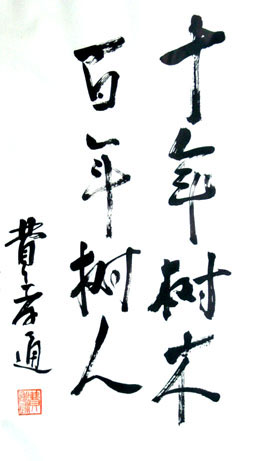 十年树木
百年树人
费孝通